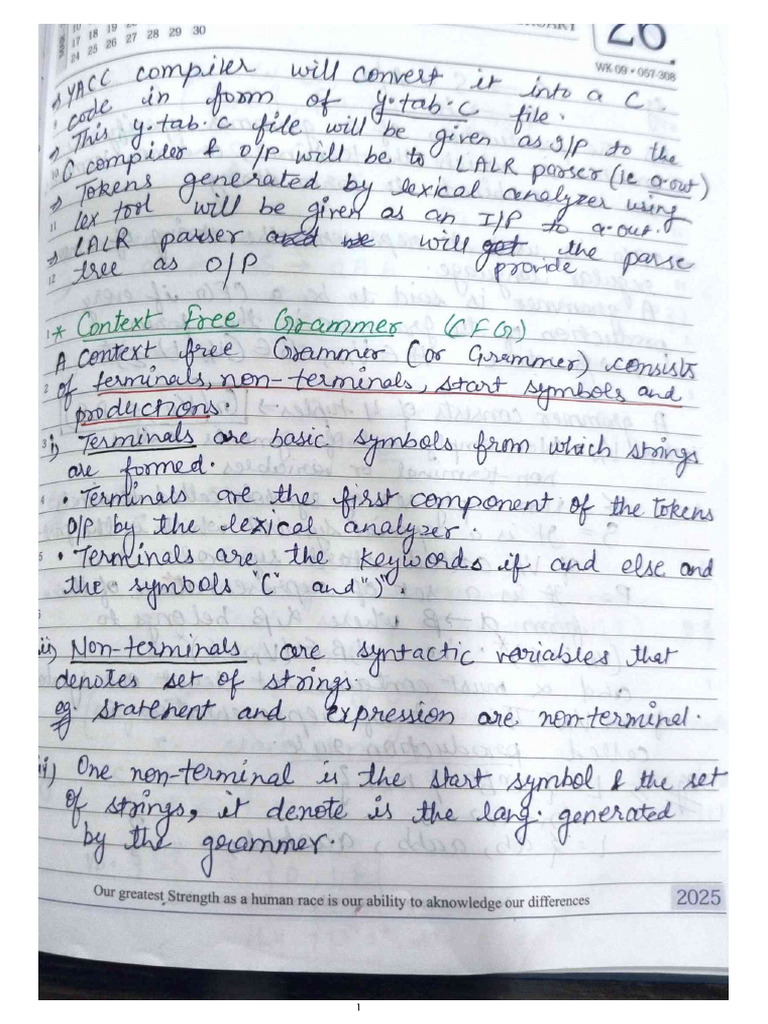 17 18 19
24 25 26 27 28 29 30
26
WK 09 • 057-308
→ YACC compiler will convert it into a C
code in form of y.tab.c file.
→ This y.tab.c file will be given as I/P to the
C compiler & O/P will be to LALR parser (ie a.out)
→ Tokens generated by lexical analyzer using
lex tool will be given as an I/P to a.out.
→ LALR parser and we will get the parse
provide
tree as O/P
* Context Free Grammer (CFG)
A context free Grammer (or Grammer) consists
of terminals, non-terminals, start symbols and
productions.
i) Terminals are basic symbols from which strings
are formed.
• Terminals are the first component of the tokens
O/P by the lexical analyzer.
• Terminals are the keywords if and else and
the symbols "(" and ")".
ii) Non-terminals are syntactic variables that
denotes set of strings.
eg. statement and expression are non-terminal.
iii) One non-terminal is the start symbol & the set
of strings, it denote is the lang. generated
by the grammer.
Our greatest Strength as a human race is our ability to aknowledge our differences
2025
1